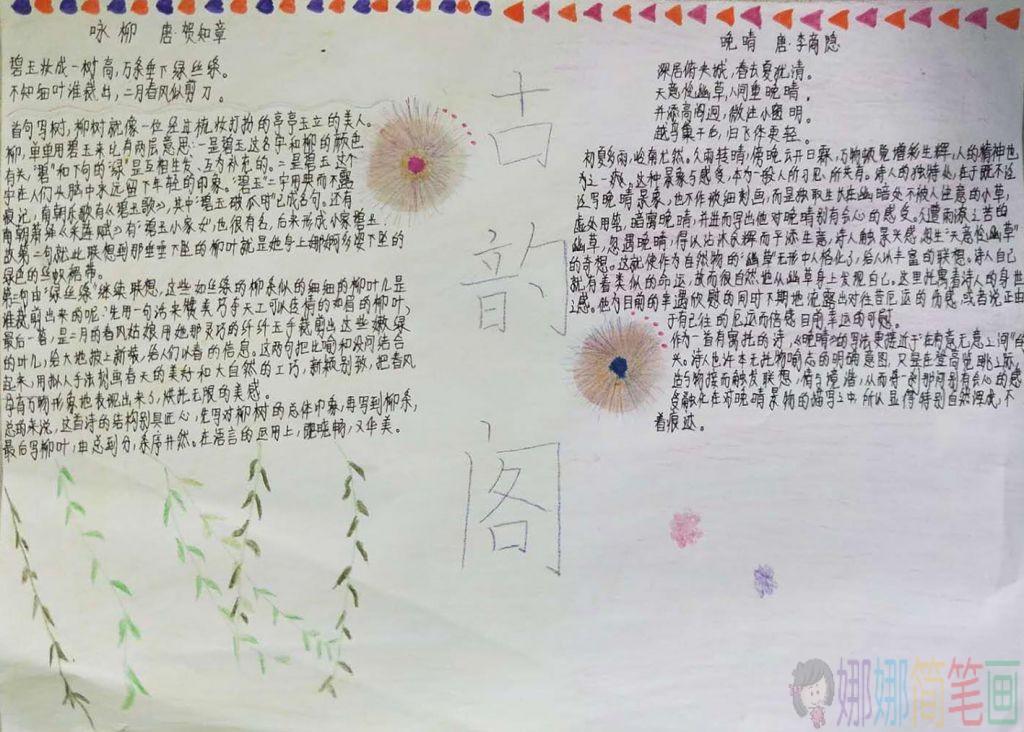 咏柳 唐·贺知章
碧玉妆成一树高,万条垂下绿丝绦。
不知细叶谁裁出,二月春风似剪刀。
首句写树,柳树就像一位经过梳妆打扮的亭亭玉立的美人。
柳,单单用碧玉来比有两层意思:一是碧玉这名字和柳的颜色
有关,"碧"和下句的"绿"是互相生发、互为补充的。二是碧玉这个
字在人们头脑中永远留下年轻的印象。"碧玉"二字用典而不露
痕迹,南朝乐府有《碧玉歌》,其中"碧玉破瓜时"已成名句。还有
南朝萧绎《采莲赋》有"碧玉小家女",也很有名,后来形成小家碧玉
故第二句就此联想到那垂垂下坠的柳叶就是她身上婀娜多姿下坠的
绿色的丝织裙带。
第三句由"绿丝绦"继续联想,这些如丝绦的柳条似的细细的柳叶儿是
谁裁剪出来的呢?先用一句话来赞美巧夺天工可以传情的如眉的柳叶,
最后一答,是二月的春风姑娘用她那灵巧的纤纤玉手裁剪出这些嫩绿
的叶儿,给大地披上新装,给人们以春的信息。这两句把比喻和设问结合
起来,用拟人手法刻画春天的美好和大自然的工巧,新颖别致,把春风
孕育万物形象地表现出来了,烘托无限的美感
总的来说,这首诗的结构别具匠心,先写对柳树的总体印象,再写到柳条,
最后写柳叶,由总到分,条序井然。在语言的运用上,既晓畅,又华美。
古
韵
阁
晚晴 唐·李商隐
深居俯夹城,春去夏犹清。
天意怜幽草,人间重晚晴。
并添高阁迥,微注小窗明。
越鸟巢干后,归飞体更轻。
初夏多雨,岭南尤然。久雨转晴,傍晚云开日霁,万物顿觉增彩生辉,人的精神也
为之一爽。这种景象与感受,本为一般人所习见、所共有。诗人的独特处,在于既不泛
泛写晚晴景象,也不作琐细刻画,而是独取生长在幽暗处不被人注意的小草,
虚处用笔,暗寓晚晴,并进而写出他对晚晴别有会心的感受。久遭雨潦之苦的
幽草,忽遇晚晴,得以沾沐余辉而平添生意,诗人触景兴感,忽生"天意怜幽草"
的奇想。这就使作为自然物的"幽草"无形中人格化了,给人以丰富的联想。诗人自己
就有着类似的命运,故而很自然地从幽草身上发现自己。这里托寓着诗人的身世
之感。他为目前的幸遇欣慰的同时不期地流露出对往昔厄运的伤感,或者说正由
于有已往的厄运而倍感目前幸运的可慰。
作为一首有寓托的诗,《晚晴》的写法更接近于"在有意无意之间"的"
兴"。诗人也许本无托物喻志的明确意图,又是在登高览眺之际,
适与物接而触发联想,情与境谐,从而将一刹那间别有会心的感
受融化在对晚晴景物的描写之中,所以显得特别自然浑成,不
着痕迹。
娜娜简笔画